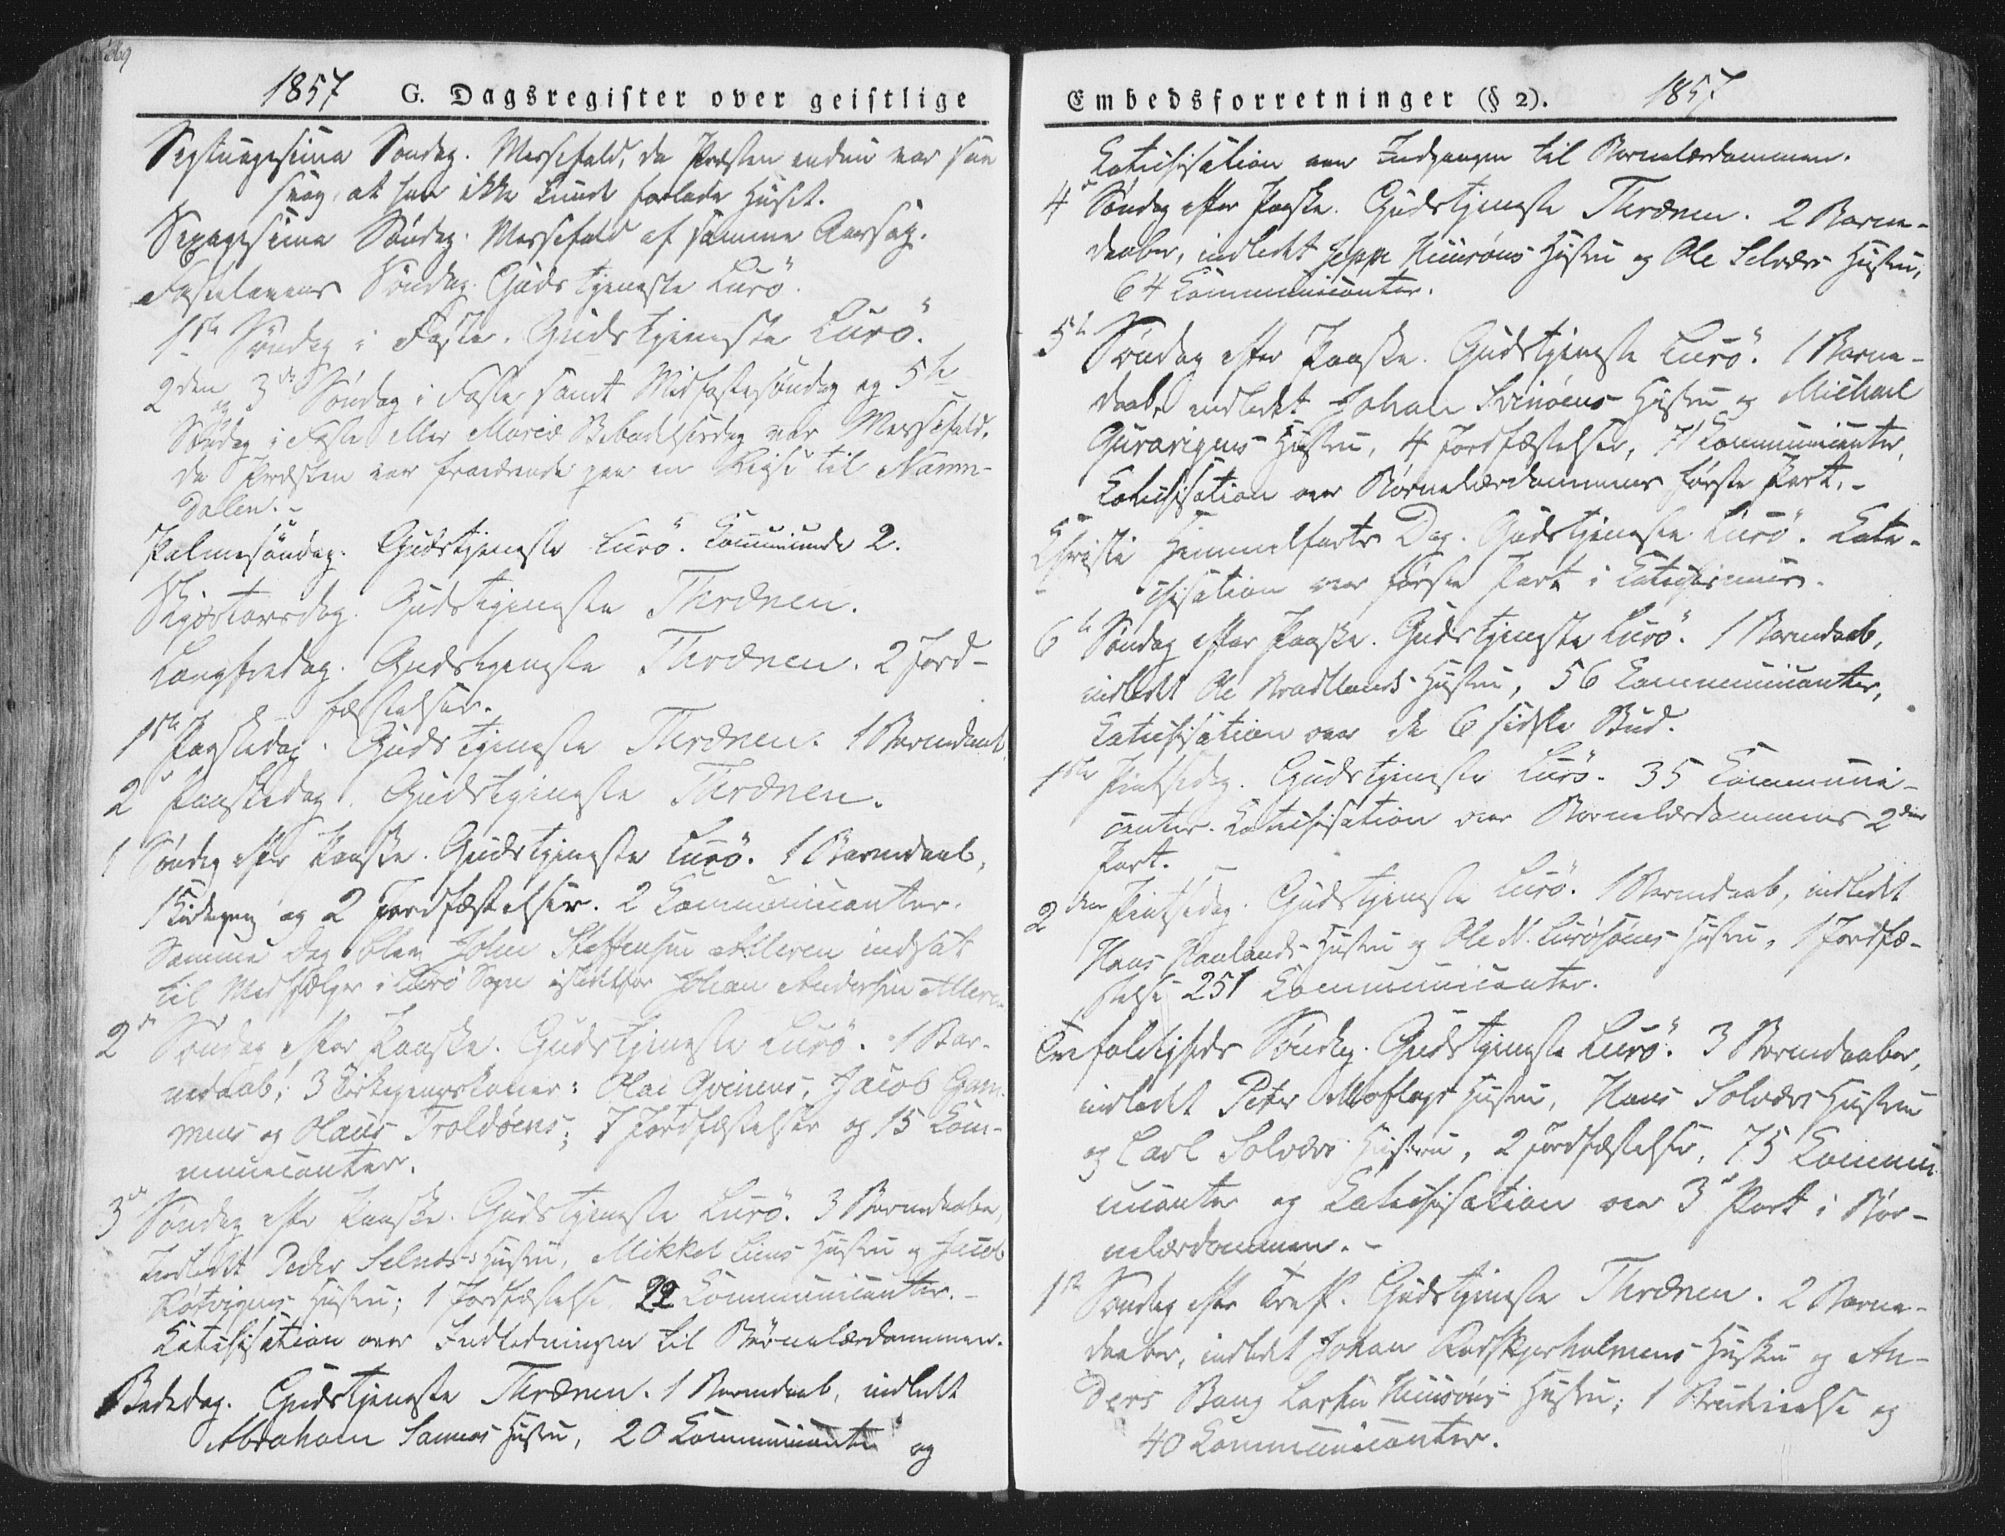 1857 G. Dagsregister over geistlige
Septuagesima Søndag. Messefald, da Præsten endnu var saa
svag, at han ikke kunde forlade Huset.
Sexagesima Søndag. Messefald af samme Aarsag.
Fastelavens Søndag. Gudstjeneste Lurö.
1ste Søndag i Faste. Gudstjeneste Lurö.
2den og 3die Søndag i Faste samt Midfastesøndag og 5te
Søndag i Faste eller Mariæ Bebudelsesdag var Messefald,
da Præsten var fraværende paa en Reise til Namm-
dalen. -
Palmesöndag. Gudstjeneste Lurö. Communicerede 2.
Skjærtorsdag. Gudstjeneste Thrænen.
Langfredag. Gudstjeneste Thrænen. 2 Jord-
fæstelser.
1ste Paaskedag. Gudstjeneste Thrænen. 1 Barnedaab.
2 Paaskedag. Gudstjeneste Thrænen.
1 Søndag efter Paaske. Gudstjeneste Lurö. 1 Barnedaab,
1 Kirkegang og 2 Jordfæstelser. 2 Communicanter.
Samme Dag blev John Steffensen Alleren indsat
til Medhjælper i Lurö Sogn istedetfor Johan Andersen Alleren
2den Søndag efter Paaske. Gudstjeneste Lurö. 1 Bar-
nedaab; 3 Kirkegangskoner: Olai Qveinens, Jacob
og Olaus Troldöens; 7 Jordfæstelser og 15 Com-
municanter.
3die Søndag efter Paaske. Gudstjeneste Lurö. 3 Barnedaabe,
Indledt Peder Selnæs Hustru, Mikkel Hustru og Jacob
Rötvigens Hustru; 1 Jordfæstelse 22 Communicanter. -
Katechisation over Indledningen til Børnelærdommen.
Bededag. Gudstjeneste Thrænen. 1 Barnedaab, indledt
Abraham Sannæs Hustru, 20 Communicanter og
Embedsforretninger (§ 2). 1857
Katechisation over Indgangen til Barnelærdommen.
4de Søndag efter Paaske. Gudstjeneste Thrænen. 2 Barne-
daaber, indledt Jeppe Huusöens Hustru og Ole Selvær Hustru,
64 Communicanter.
5te Søndag efter Paaske. Gudstjeneste Lurö. 1 Barne-
daab, indledt Johan Svinöens Hustru og Michael
Qvarøigens Hustru, 4 Jordfæstelser, 71 Communicanter,
Katechisation over Børnelærdommens første Part. -
Christi Himmelfarts Dag. Gudstjeneste Lurö. Kate-
chisation over første Part i Katechismus.
6te Søndag efter Paaske. Gudstjeneste Lurö. 1 Barnedaab,
indledt Ole Hustru, 56 Communicanter,
Katechisation over de 6 sidste Bud.
1ste Pintsedag. Gudstjeneste Lurö. 35 Communi-
canter. Katechisation over Barnelærdommens 2den
Part. -
2den Pintsedag. Gudstjeneste Lurö. 1 Barnedaab, indledt
Hans Haulands Hustru og Ole N. Hustru, 1 Jordfæ-
stelse, 251 Communicanter.
Trefoldigheds Søndag. Gudstjeneste Lurö. 3 Barnedaaber,
indledt Peter Moflags Hustru, Hans Solvær Hustru
og Carl Solvær Hustru, 2 Jordfæstelser, 75 Commun-
icanter og Katechisation over 3die Part i Bør-
nelærdommen. -
1ste Søndag efter Tref. Gudstjeneste Thrænen. 2 Barne-
daaber, indledt Johan Rødskjerholmens Hustru og An-
ders Bang Larsen Huusöens Hustru; 1 Brudevielse og
40 Communicanter.